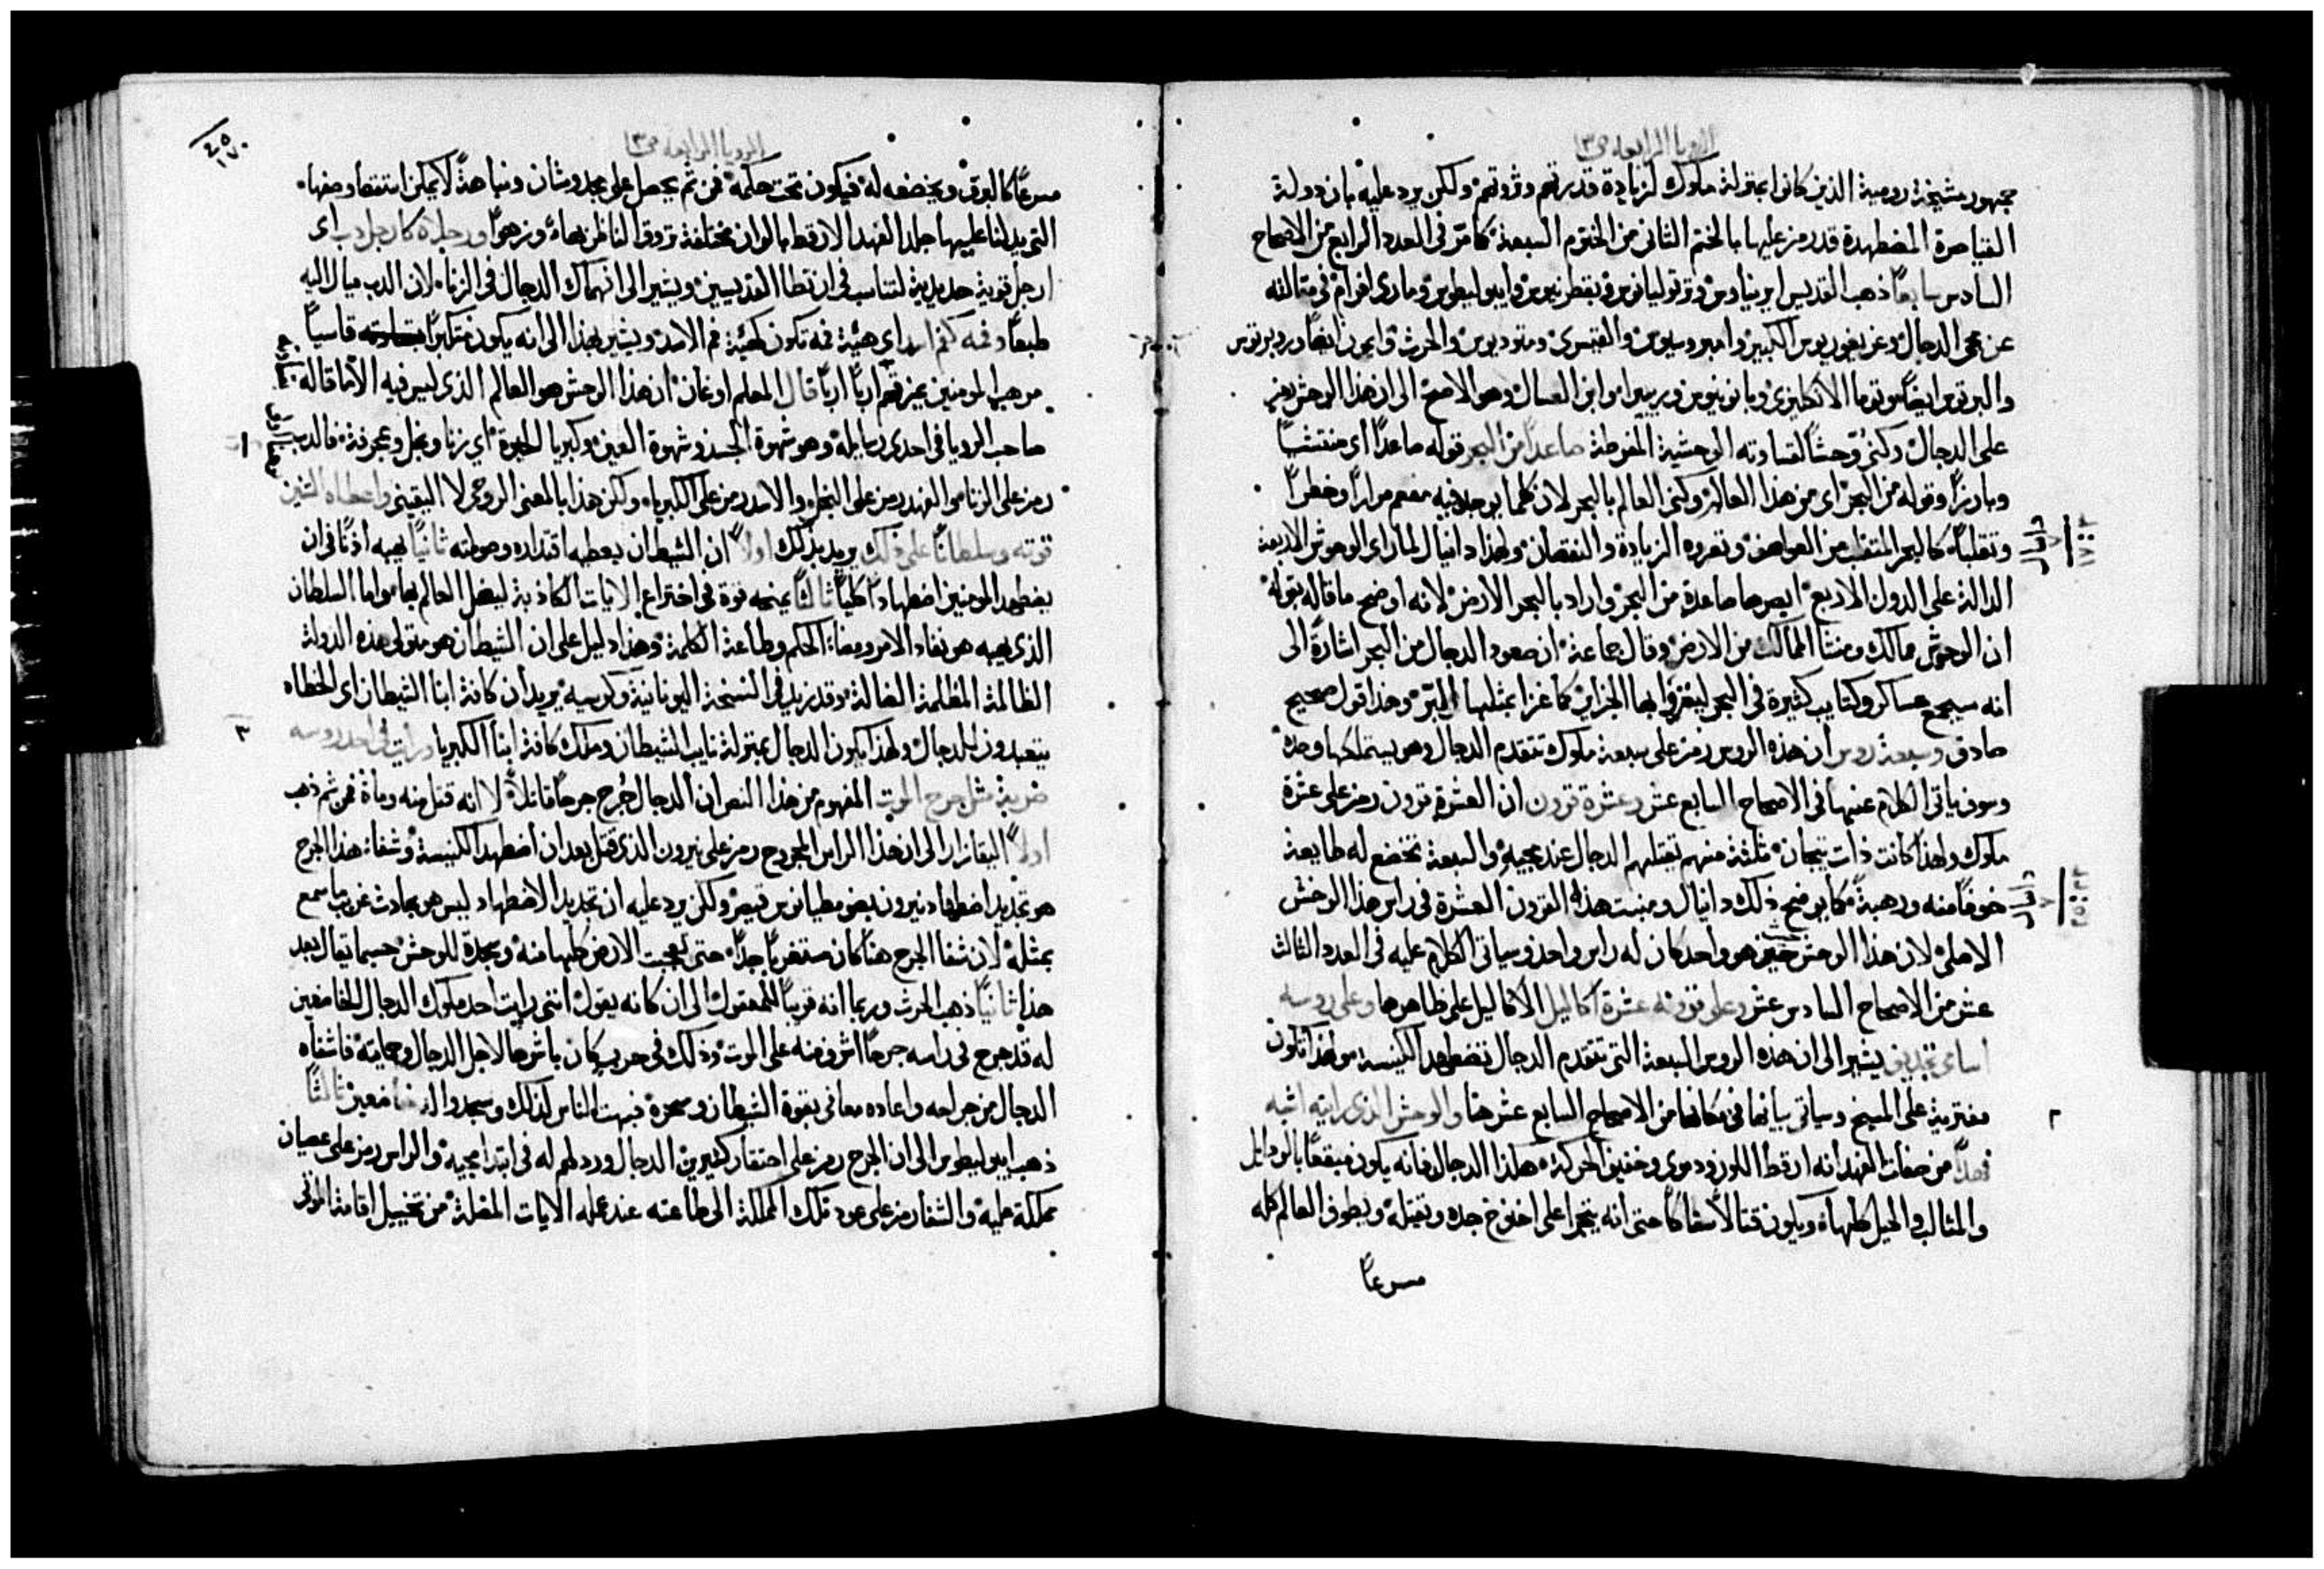 الرويا الرابعه ص١٣
جمهور مشيخة رومية الذين كانوا بمنزلة ملوك لزيادة قدرتهم وثروتهم ولكن يرد عليه بان دولة
القياصرة المضطهدة قد رمز عليها بالختم الثانى من الختوم السبعة كما مرّ فى العدد الرابع من الاصحاح
السادس سابعًا ذهب القديس ايريناوس وترتوليانوس وبقطرينوس وايبوليطوس ومارى افرام فى مقالته
عن مجى الدجال وغريغوريوس الكبير وامبروسيوس والقيسرى ومتوديوس والحرث وايمون ايضًا وروبرتوس
والبرتوس ايضًا وتوما الانكليزى وبانونيوس وريبيرا وابن العسال وهو الاصح الى ان هذا الوحش رمز
على الدجال وكنى وحشًا لقساوته الوحشية المفرطة صاعدًا من البحر قوله صاعدًا اى منتشيًا
وبارزًا وقوله من البحر اى من هذا العالم وكنى العالم بالبحر لان كلما يوجد فيه مفعم مرارًا وخطرًا
وتقلبًا كالبحر المتقلب من العواصف وتعروه الزيادة والنقصان ولهذا دانيال لما راى الوحوش الاربعة
الدالة على الدول الاربع ابصرها صاعدة من البحر واراد بالبحر الارض لانه اوضح ما قاله بقوله
ان الوحوش ممالك ومنشا الممالك من الارض وقال جماعة ان صعود الدجال من البحر اشارة الى
انه سيجمع عساكر وكتايب كثيرة فى البحر ليغزو بها الجزاير كما غزا بمثلها البرّ وهذا قول صحيح
صادق وسبعة روس ان هذه الروس رمز على سبعة ملوك تتقدم الدجال وهو يستملكها وحده
وسوف ياتى الكلام عنها فى الاصحاح السابع عشر وعشرة قرون ان العشرة قرون رمز على عشرة
ملوك ولهذا كانت ذات تيجان ثلثة منهم يقتلهم الدجال عند مجيه والسبعة تخضع له طايعة
خوفًا منه ورهبةً كما يوضح ذلك دانيال ومنبت هذه القرون العشرة فى راس هذا الوحش
الاصلى لان هذا الوحش حيث هو واحد كان له راس واحد وسياتى الكلام عليه فى العدد الثالث
عشر من الاصحاح السادس عشر وعلى قرونه عشرة اكاليل الاكاليل على ظاهرها وعلى روسه
اسامى تجديف يشير الى ان هذه الروس السبعة التى تتقدم الدجال تضطهد الكنيسة ولهذا تكون
مفترية على المسيح وسياتى بيانها فى مكانها من الاصحاح السابع عشر هنا والوحش الذى رايته اشبه
فهدًا من صفات الفهد انه ارقط اللون ودموى وخفيف الحركة هكذا الدجال فانه يكون مبقعًا بالرذايل
والمثالب والحيل كلها ويكون قتالًا سفاكًا حتى انه يتجرا على اخنوخ جده ويقتله ويطوف العالم كله
مسرعًا
٢
الرويا الرابعه ص١٣
مسرعًا كالبرق ويخضعه له فيكون تحت حكمه فمن ثم يحصل على مجد وشان ونباهة لا يمكن استقصا وصفها
التى يدلنا عليها جلد الفهد الارقط بالوان مختلفة تروق الناظرين بهاءً وزهوًا ورجلاه كارجل دب اى
ارجل قوية حديدية لتناسب فى ان تطا القديسين ويشير الى انهماك الدجال فى الزنا لان الدب ميال اليه
طبعًا وفمه كفم اسد اى هيئة فمه تكون كهيئة فم الاسد ويشير بهذا الى انه يكون متكبرًا قاسيًا
مرهبا للمومنين يمزقهم اربًا اربًا قال المعلم اوغان ان هذا الوحش هو العالم الذى ليس فيه الا ما قاله
صاحب الرويا فى احدى رسايله وهو شهوة الجسد وشهوة العين وكبريا الحيوة اى زنا وبخل وعجرفة فالدب
رمز على الزنا والفهد رمز على البخل والاسد رمز على الكبرياء ولكن هذا بالمعنى الروحى لا اليقينى واعطاه التنين
قوته وسلطانًا على ذلك يريد بذلك اولًا ان الشيطان يعطيه اقتداره وصولته ثانيًا يهبه اذنًا فى ان
يضطهد المومنين اضطهادًا كليًا ثالثًا يمنحه قوة فى اختراع الايات الكاذبة ليضل العالم بها واما السلطان
الذى يهبه هو نفاد الامر ومضاء الحكم وطاعة الكلمة وهذا دليل على ان الشيطان هو متولى هذه الدولة
الظالمة المظلمة الضالة وقد زيد فى النسخة اليونانية وكرسيه يريد ان كافة ابنا الشيطان اى الخطاه
يتعبدون للدجال ولهذا يكون الدجال بمنزلة نايب الشيطان وملك كافة ابنا الكبريا ورايت فى احد روسه
ضربة مثل جرح الموت المفهوم من هذا النص ان الدجال جُرح جرحًا قاتلًا لا انه قتل منه ومات فمن ثم ذهب
اولًا اليقازار الى ان هذا الراس المجروح رمز على نيرون الذى قتل بعد ان اضطهد الكنيسة وشفاء هذا الجرح
هو تجديد اضطهاد نيرون بضومطيانوس قيصر ولكن يرد عليه ان تجديد الاضطهاد ليس هو بحادث غريب ما سمع
بمثله لان شفا الجرح هنا كان مستغربًا جدًا حتى تعجبت الارض كلها منه وسجدة للوحش حسبما يقال بعد
هذا ثانيًا ذهب الحرث وربما انه قريبًا للمعقول الى ان كانه يقول اننى رايت احد ملوك الدجال الخاضعين
له قد جرح فى راسه جرحًا اشرف منه على الموت وذلك فى حرب كان باشرها لاجل الدجال وحمايته فاشفاه
الدجال من جراحه واعاده معافى بقوة الشيطان وسحره فبهت الناس لذلك وسجدوا له خاضعين ثالثًا
ذهب ايبوليطوس الى ان الجرح رمز على احتقار كثيرين الدجال وردلهم له فى ابتدا مجيه والراس رمز على عصيان
مملكة عليه والشفا رمز على عود تلك المملكة الى طاعته عند عمله الايات المضلة من تخييل اقامة الموتى
٣